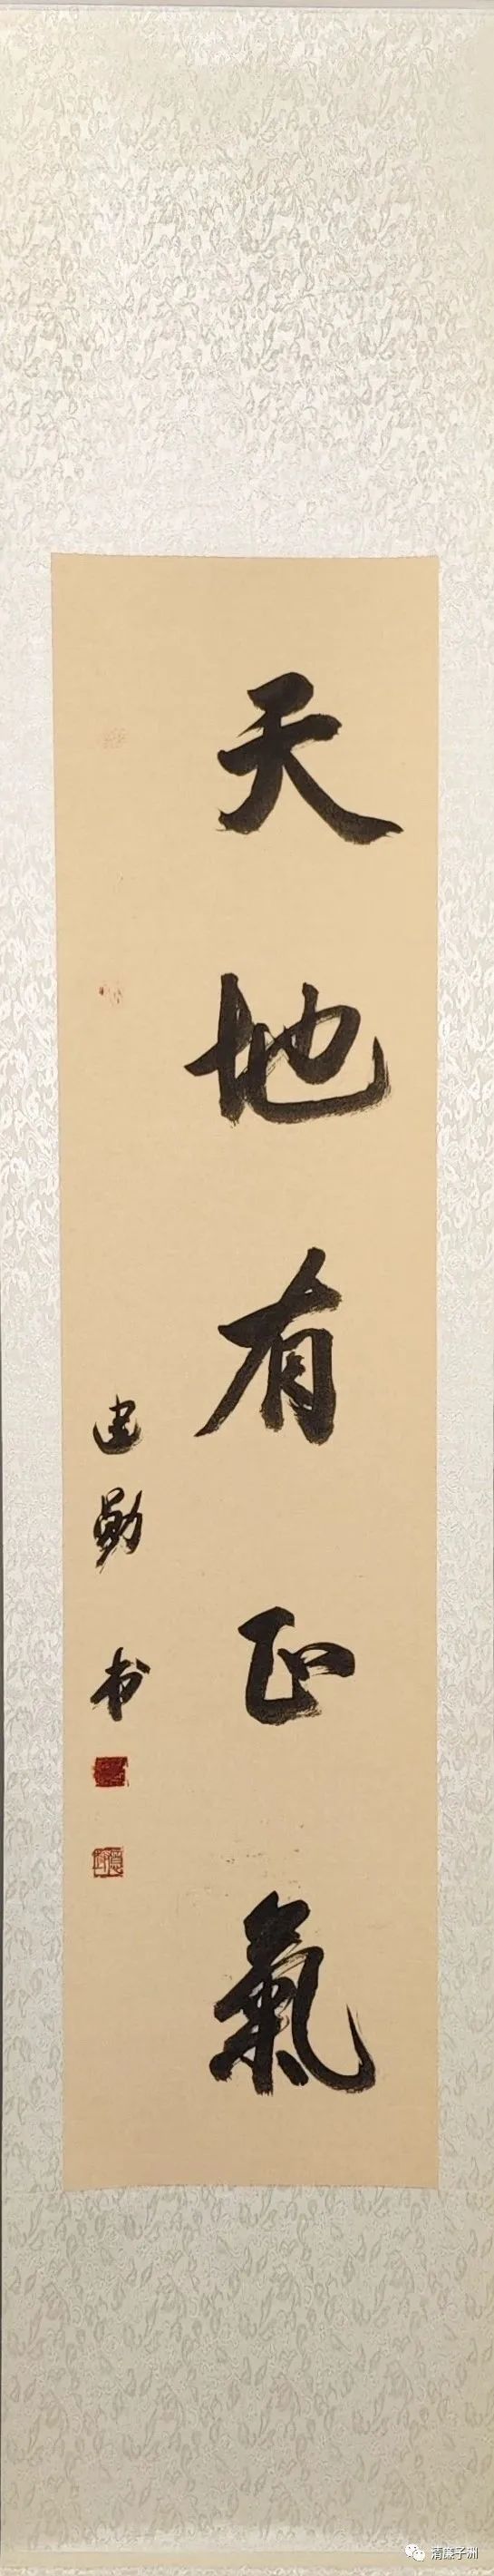 天地有正氣
建勛 书
清廉子洲